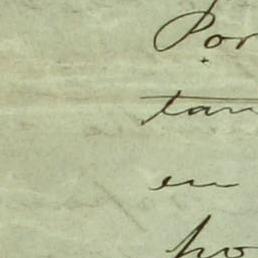 Por
tan
en
ho